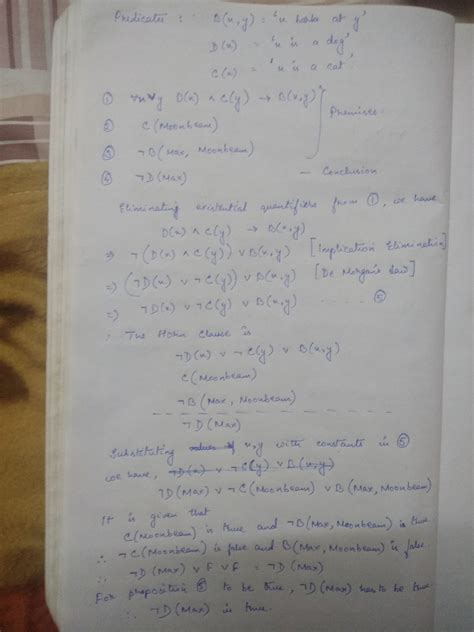 Predicates : B(x,y) = 'x barks at y'
D(x) = 'x is a dog'
C(x) = 'x is a cat'
① ∀x∀y D(x) ∧ C(y) → B(x,y)
② C(Moonbeam)
③ ¬B(Max, Moonbeam)
Premises
④ ¬D(Max) — Conclusion
Eliminating existential quantifiers from ①, we have
D(x) ∧ C(y) → B(x,y)
⇒ ¬(D(x) ∧ C(y)) ∨ B(x,y) [Implication Elimination]
⇒ (¬D(x) ∨ ¬C(y)) ∨ B(x,y) [De Morgan's Law]
⇒ ¬D(x) ∨ ¬C(y) ∨ B(x,y) ..... ⑤
∴ The Horn Clause is
¬D(x) ∨ ¬C(y) ∨ B(x,y)
C(Moonbeam)
¬B(Max, Moonbeam)
¬D(Max)
Substituting values x,y with constants in ⑤
we have, ¬D(x) ∨ ¬C(y) ∨ B(x,y)
¬D(Max) ∨ ¬C(Moonbeam) ∨ B(Max, Moonbeam)
It is given that
C(Moonbeam) is true and ¬B(Max, Moonbeam) is true
∴ ¬C(Moonbeam) is false and B(Max, Moonbeam) is false
∴ ¬D(Max) ∨ F ∨ F = ¬D(Max)
For proposition ⑤ to be true, ¬D(Max) has to be true
∴ ¬D(Max) is true.